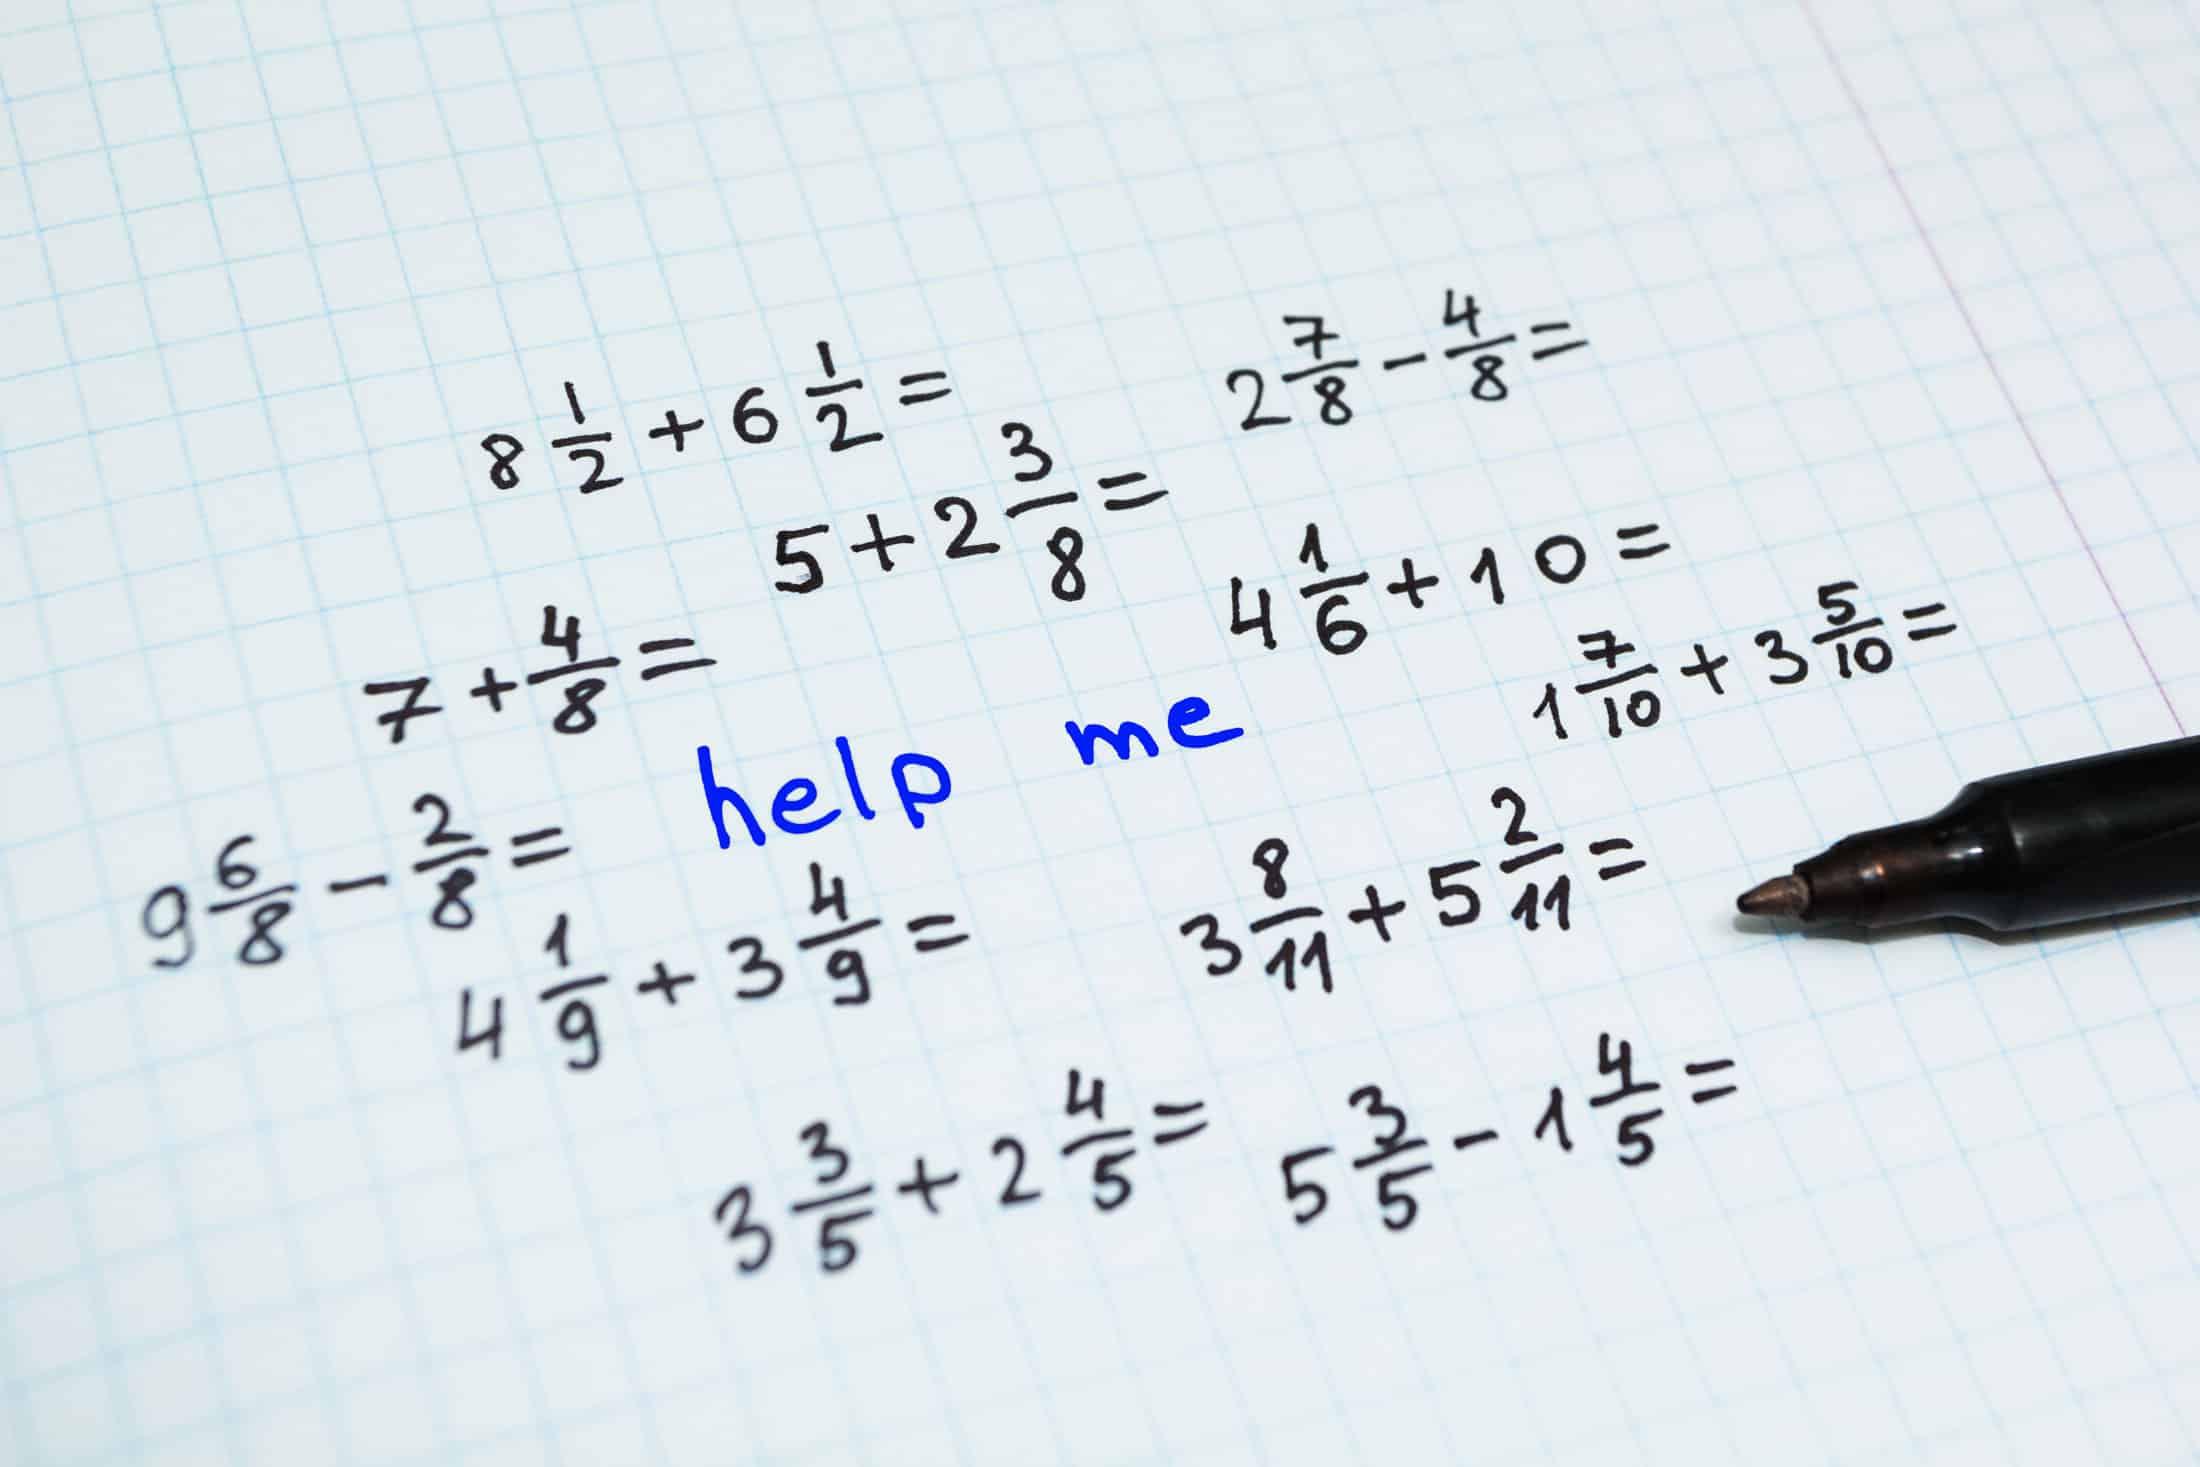 8 1/2 + 6 1/2 =
2 7/8 - 4/8 =
5 + 2 3/8 =
4 1/6 + 10 =
7 + 4/8 =
1 7/10 + 3 5/10 =
help me
9 6/8 - 2/8 =
3 8/11 + 5 2/11 =
4 1/9 + 3 4/9 =
3 3/5 + 2 4/5 =
5 3/5 - 1 4/5 =